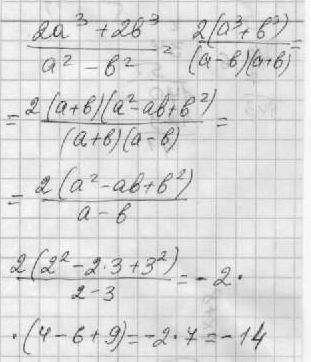 (2a³ + 2b³)/(a² - b²) = 2(a³ + b³)/((a-b)(a+b)) =
= 2(a+b)(a²-ab+b²)/((a+b)(a-b)) =
= 2(a²-ab+b²)/(a-b)
2(2²-2·3+3²)/(2-3) = -2·
·(4-6+9)=-2·7=-14